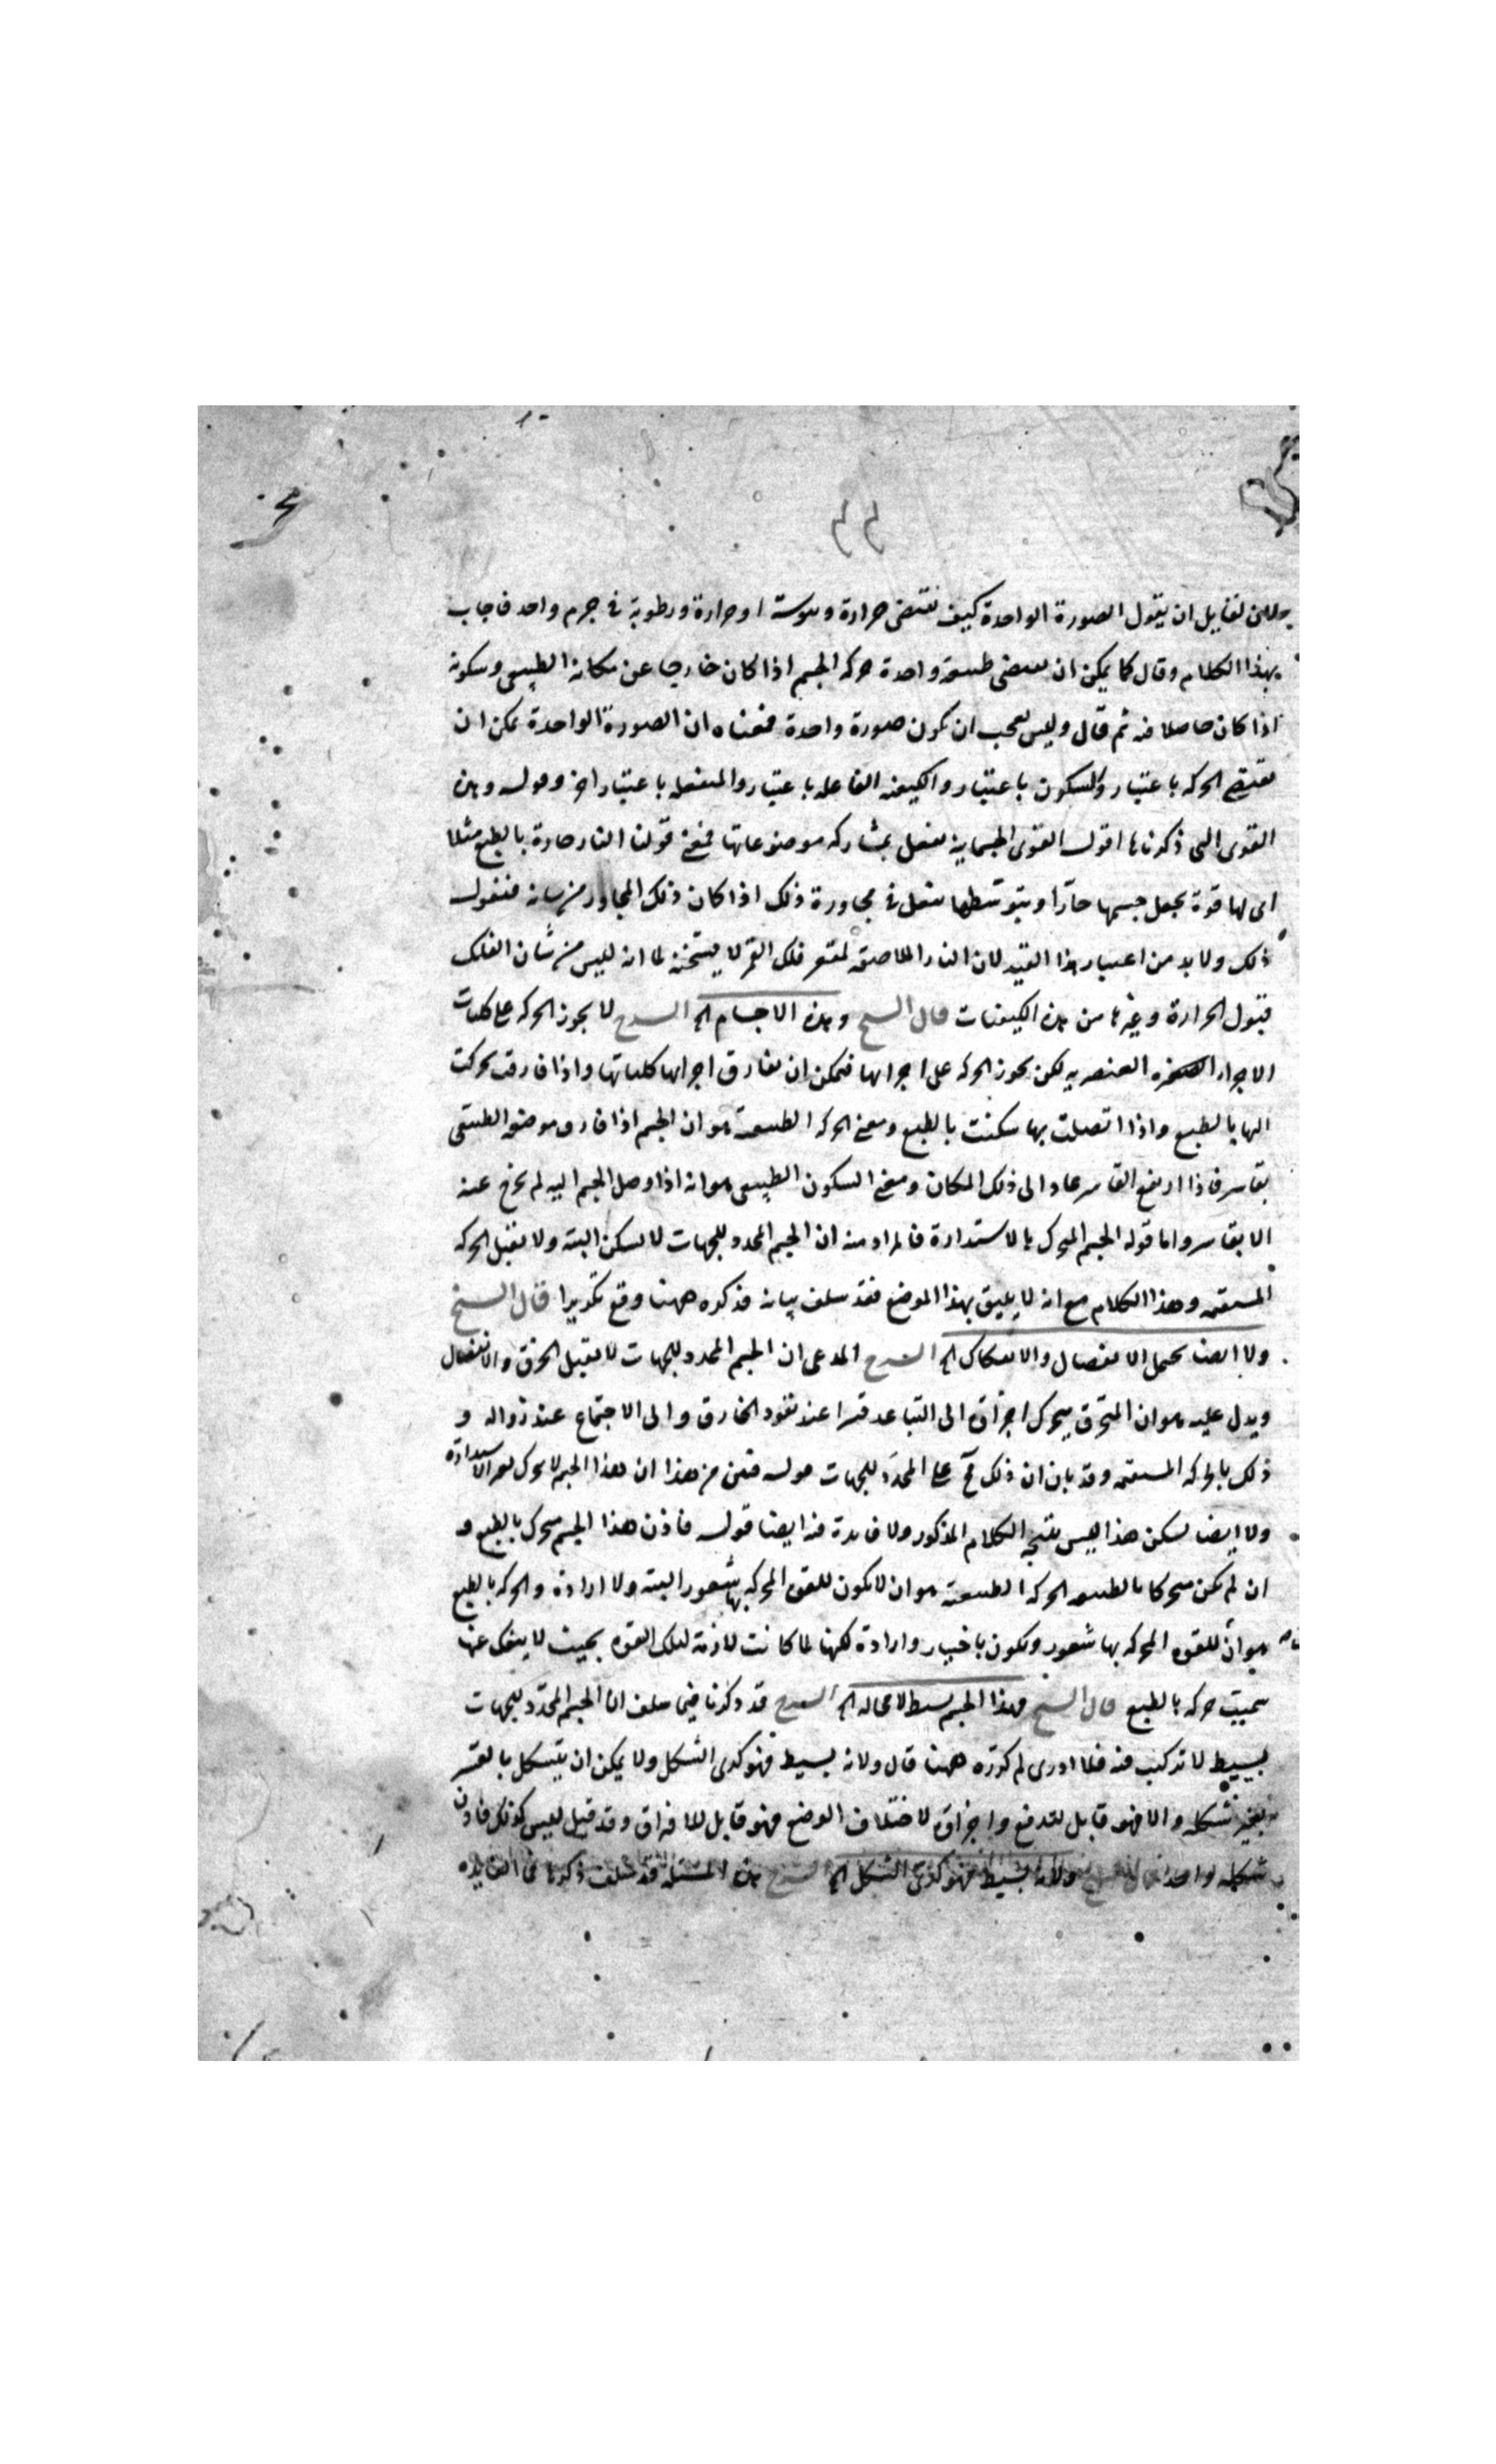 ٤٤
ولان لقايل ان يقول الصورة الواحدة كيف تقتضى حرارة ويبوسة او حرارة ورطوبة فى جرم واحد فاجاب
بهذا الكلام وقال كما يمكن ان يقتضى طبيعة واحدة حركه الجسم اذا كان خارجا عن مكانه الطبيعى وسكونه
اذا كان حاصلا فيه ثم قال وليس يعجب ان يكون صورة واحدة فمعناه ان الصورة الواحدة يمكن ان
تقتضى الحركه باعتبار والسكون باعتبار والكيفيه الفاعله باعتبار والمنفعله باعتبار اخر وقوله وهذه
القوى التى ذكرناها اقول القوى الجسمانيه تفعل بمشاركه موضوعاتها فمعنى قولنا النار حارة بالطبع مثلا
اى لها قوة تجعل جسمها حارّا وبتوسّطها تفعل فى مجاورة ذلك اذا كان ذلك المجاور من شانه قبول
ذلك ولا بد من اعتبار هذا القيد لان النار الملاصقه لمقعر فلك القمر لا يسخّنه لما انه ليس من شان الفلك
قبول الحرارة وغيرها من هذه الكيفيات قال الشيخ وهذه الاجسام الخ الشرح لا يجوز الحركه على كليات
الاجرام العنصريه لكن يجوز الحركه على اجزائها فيمكن ان تفارق اجزائها كلياتها واذا فارقت تحركت
اليها بالطبع واذا اتصلت بها سكنت بالطبع ومعنى الحركه الطبيعية هو ان الجسم اذا فارق موضعه الطبيعى
بقاسر فاذا ارتفع القاسر عاد الى ذلك المكان ومعنى السكون الطبيعى هو انه اذا وصل الجسم اليه لم يخرج عنه
الا بقاسر واما قوله الجسم المتحرك بالاستدارة فالمراد منه ان الجسم المحدد للجهات لا يسكن البته ولا يقبل الحركه
المستقيمه وهذا الكلام مع انه لا يليق بهذا الموضع فقد سلف بيانه فذكره ههنا وقع تكريرا قال الشيخ
ولا ايضا يحتمل الانفصال والانفكاك الخ الشرح المدعى ان الجسم المحدد للجهات لا يقبل الخرق والانفصال
ويدل عليه هو ان المتخرق يتحرك اجزاؤه الى التباعد قسرا عند نفود الخارق والى الاجتماع عند زواله و
ذلك بالحركه المستقيمه وقد بان ان ذلك مح على المحدّد للجهات قوله فتبين من هذا ان هذا الجسم لا يتحرك لغير الاستدارة
ولا ايضا يسكن هذا ليس نتيجه الكلام المذكور ولا فايدة فيه ايضا قوله فاذن هذا الجسم متحرك بالطبع و
ان لم يكن متحركا بالطبيعه الحركه الطبيعية هو ان لا يكون للقوه المحركه بها شعور البته ولا ارادة والحركه بالطبع
هو انّ للقوه المحركه بها شعور ويكون باختيار وارادة لكنها لما كانت لازمة لتلك القوه بحيث لا ينفك عنها
سميت حركه بالطبع قال الشيخ فهذا الجسم بسيط لا محاله الخ الشرح قد ذكرنا فيما سلف ان الجسم المحدّد للجهات
بسيط لا تركيب فيه فلا ادرى لم كرّره ههنا قال ولانه بسيط فهو كرى الشكل ولا يمكن ان يتشكل بالقسر
بغير شكله والا فهو قابل للدفع واجزاؤه لاختلاف الوضع فهو قابل للافراق وقد قيل ليس كذلك فاذن
شكله واحد قال الشيخ ولانه بسيط فهو كرى الشكل الخ الشرح هذه المسئله قد سلف ذكرها فى الفايده